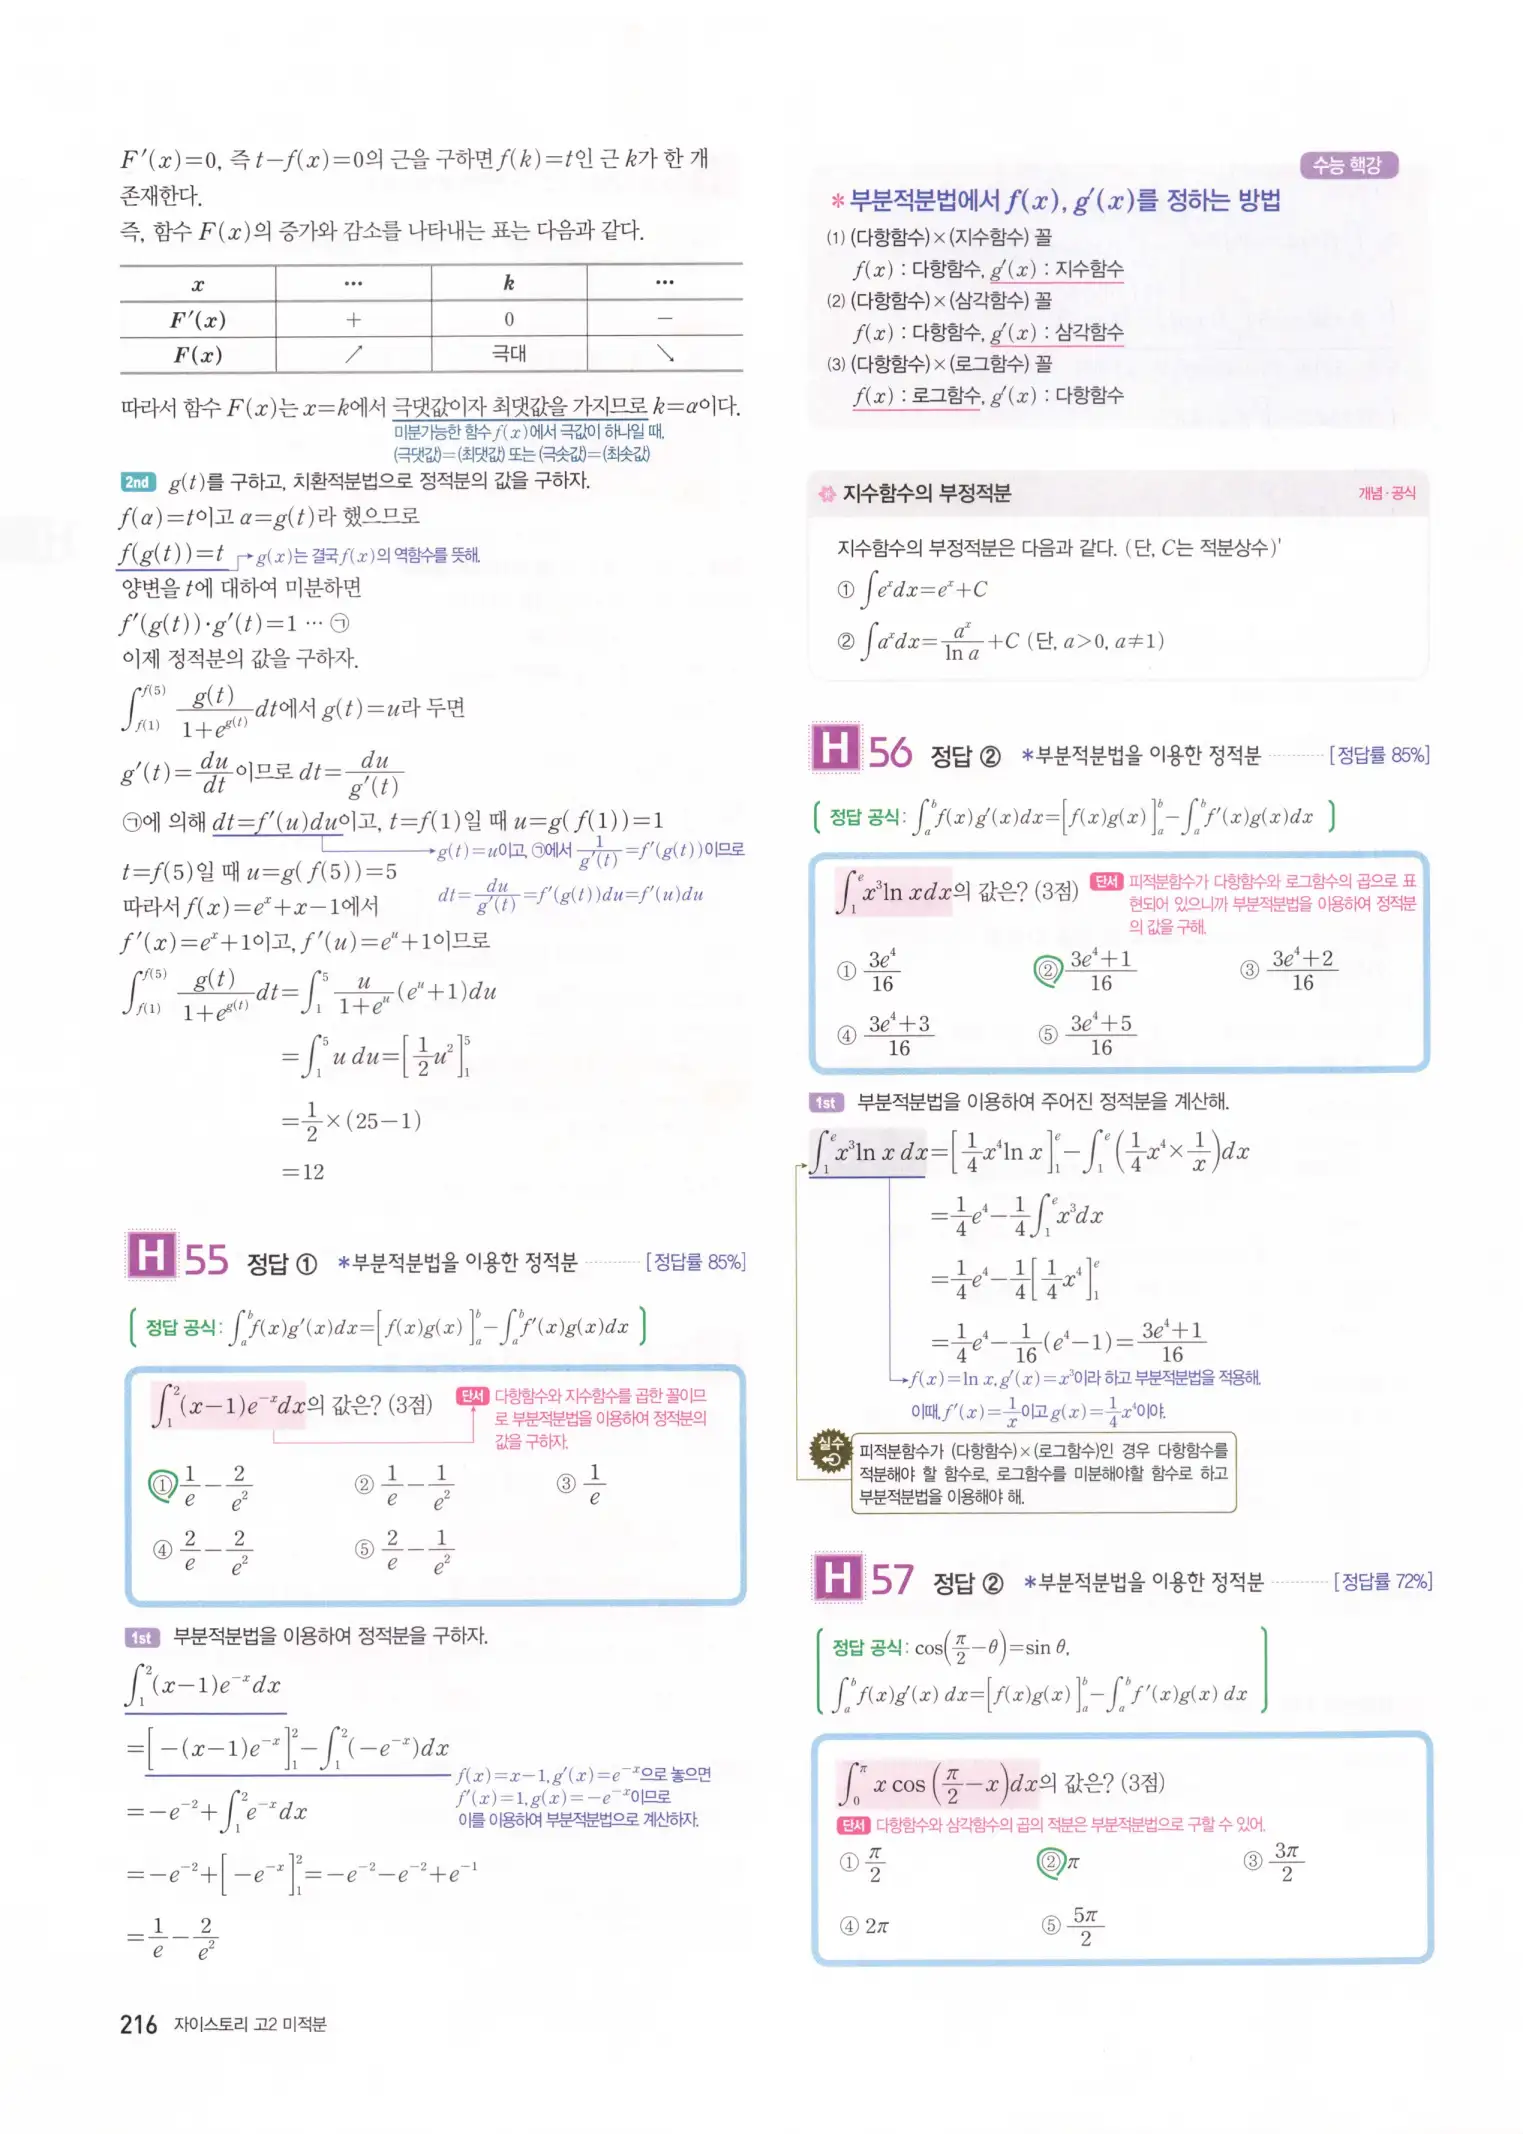 F′(x)=0, 즉 t−f(x)=0의 근을 구하면 f(k)=t인 근 k가 한 개
존재한다.
즉, 함수 F(x)의 증가와 감소를 나타내는 표는 다음과 같다.
x ⋯ k ⋯
F′(x) + 0 −
F(x) ↗ 극대 ↘
따라서 함수 F(x)는 x=k에서 극댓값이자 최댓값을 가지므로 k=α이다.
미분가능한 함수 f(x)에서 극값이 하나일 때,
(극댓값)=(최댓값) 또는 (극솟값)=(최솟값)
2nd g(t)를 구하고, 치환적분법으로 정적분의 값을 구하자.
f(α)=t이고 α=g(t)라 했으므로
f(g(t))=t → g(x)는 결국 f(x)의 역함수를 뜻해.
양변을 t에 대하여 미분하면
f′(g(t))·g′(t)=1 ⋯ ㉠
이제 정적분의 값을 구하자.
∫_{f(1)}^{f(5)} g(t)/(1+e^{g(t)}) dt에서 g(t)=u라 두면
g′(t)=du/dt이므로 dt=du/g′(t)
㉠에 의해 dt=f′(u)du이고, t=f(1)일 때 u=g(f(1))=1
→ g(t)=u이고, ㉠에서 1/g′(t)=f′(g(t))이므로
t=f(5)일 때 u=g(f(5))=5
dt=du/g′(t)=f′(g(t))du=f′(u)du
따라서 f(x)=e^x+x−1에서
f′(x)=e^x+1이고, f′(u)=e^u+1이므로
∫_{f(1)}^{f(5)} g(t)/(1+e^{g(t)}) dt=∫_1^5 u/(1+e^u) (e^u+1)du
=∫_1^5 u du=[1/2 u²]_1^5
=1/2×(25−1)
=12
H 55 정답 ① *부분적분법을 이용한 정적분 ⋯⋯ [정답률 85%]
정답 공식: ∫_a^b f(x)g′(x)dx=[f(x)g(x)]_a^b−∫_a^b f′(x)g(x)dx
∫_1^2 (x−1)e^{−x}dx의 값은? (3점)
단서 다항함수와 지수함수를 곱한 꼴이므
로 부분적분법을 이용하여 정적분의
값을 구하자.
① 1/e−2/e² ② 1/e−1/e² ③ 1/e
④ 2/e−2/e² ⑤ 2/e−1/e²
1st 부분적분법을 이용하여 정적분을 구하자.
∫_1^2 (x−1)e^{−x}dx
=[−(x−1)e^{−x}]_1^2−∫_1^2 (−e^{−x})dx
f(x)=x−1, g′(x)=e^{−x}으로 놓으면
f′(x)=1, g(x)=−e^{−x}이므로
이를 이용하여 부분적분법으로 계산하자.
=−e^{−2}+∫_1^2 e^{−x}dx
=−e^{−2}+[−e^{−x}]_1^2=−e^{−2}−e^{−2}+e^{−1}
=1/e−2/e²
216 자이스토리 고2 미적분
수능 핵강
* 부분적분법에서 f(x), g′(x)를 정하는 방법
(1) (다항함수)×(지수함수) 꼴
f(x) : 다항함수, g′(x) : 지수함수
(2) (다항함수)×(삼각함수) 꼴
f(x) : 다항함수, g′(x) : 삼각함수
(3) (다항함수)×(로그함수) 꼴
f(x) : 로그함수, g′(x) : 다항함수
지수함수의 부정적분 개념·공식
지수함수의 부정적분은 다음과 같다. (단, C는 적분상수)'
① ∫e^x dx=e^x+C
② ∫a^x dx=a^x/ln a+C (단, a>0, a≠1)
H 56 정답 ② *부분적분법을 이용한 정적분 ⋯⋯ [정답률 85%]
정답 공식: ∫_a^b f(x)g′(x)dx=[f(x)g(x)]_a^b−∫_a^b f′(x)g(x)dx
∫_1^e x³ln xdx의 값은? (3점)
단서 피적분함수가 다항함수와 로그함수의 곱으로 표
현되어 있으니까 부분적분법을 이용하여 정적분
의 값을 구해.
① 3e⁴/16 ② (3e⁴+1)/16 ③ (3e⁴+2)/16
④ (3e⁴+3)/16 ⑤ (3e⁴+5)/16
1st 부분적분법을 이용하여 주어진 정적분을 계산해.
∫_1^e x³ln x dx=[1/4 x⁴ln x]_1^e−∫_1^e (1/4 x⁴×1/x)dx
=1/4 e⁴−1/4∫_1^e x³dx
=1/4 e⁴−1/4[1/4 x⁴]_1^e
=1/4 e⁴−1/16(e⁴−1)=(3e⁴+1)/16
→ f(x)=ln x, g′(x)=x³이라 하고 부분적분법을 적용해.
이때, f′(x)=1/x이고 g(x)=1/4 x⁴이야.
실수 피적분함수가 (다항함수)×(로그함수)인 경우 다항함수를
적분해야 할 함수로, 로그함수를 미분해야할 함수로 하고
부분적분법을 이용해야 해.
H 57 정답 ② *부분적분법을 이용한 정적분 ⋯⋯ [정답률 72%]
정답 공식: cos(π/2−θ)=sin θ,
∫_a^b f(x)g′(x) dx=[f(x)g(x)]_a^b−∫_a^b f′(x)g(x) dx
∫_0^π x cos(π/2−x)dx의 값은? (3점)
단서 다항함수와 삼각함수의 곱의 적분은 부분적분법으로 구할 수 있어.
① π/2 ② π ③ 3π/2
④ 2π ⑤ 5π/2